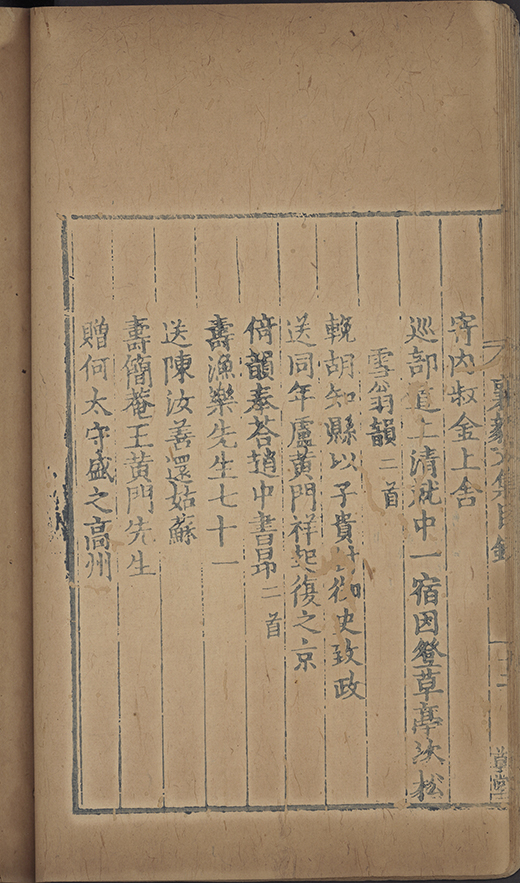 襄毅文集目錄
草堂
寄内叔金上舍
巡部道上清中一宿因登草亭次松
雪翁韻二首
輓胡知縣以子貴封御史致政
送同年盧黃門祥起復之京
倚韻奉荅趙中書昂二首
壽漁樂先生七十一
送陳汝善還姑蘇
壽簡菴王黄門先生
贈何太守盛之高州